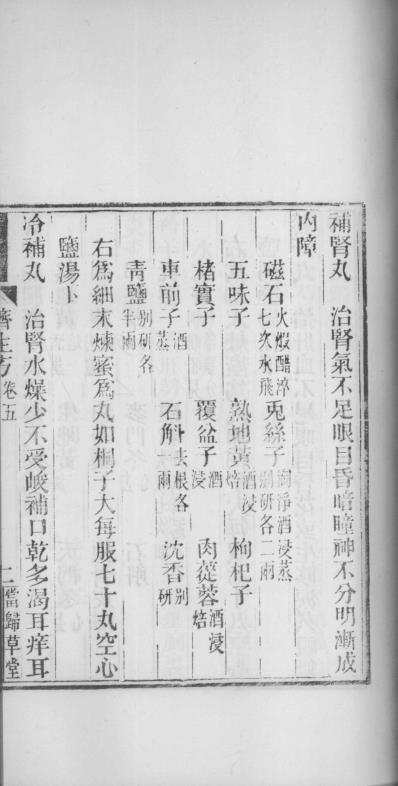 補腎丸　治腎氣不足眼目昏暗瞳神不分明漸成
內障
磁石火煅醋淬七次水飛　兎絲子淘淨酒浸蒸別研各二兩
五味子　熟地黃酒浸焙　枸杞子
楮實子　覆盆子酒浸　肉蓯蓉酒浸焙
車前子酒蒸　石斛去根各一兩　沈香別研
青鹽別研各半兩
右爲細末煉蜜爲丸如桐子大每服七十丸空心
鹽湯下
冷補丸　治腎水燥少不受峻補口乾多渴耳痒耳
濟生方　卷五　二　當歸草堂